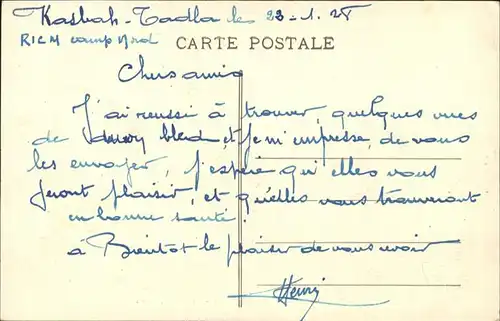 Kasbah-Tadla les 23-1.28
RICM camp Nord
CARTE POSTALE
Chers amis
J'ai reussi à trouver, quelques vues
de bled et je m'empresse, de vous
les envoyer, j'espère qu'elles vous
feront plaisir, et qu'elles vous trouveront
en bonne santé.
à Bientot le plaisir de vous voir
Henri